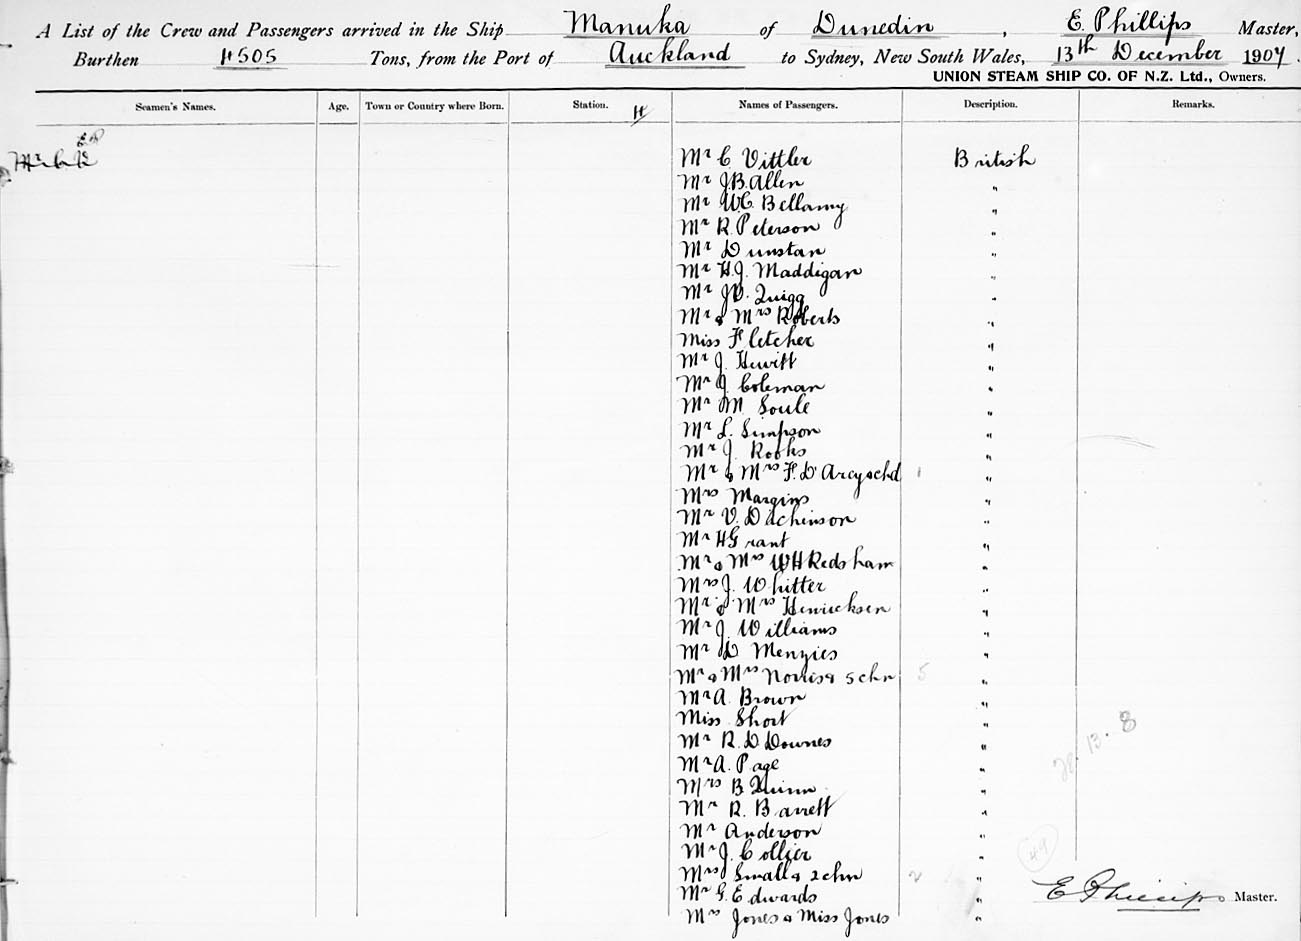 A List of the Crew and Passengers arrived in the Ship Manuka of Dunedin, E. Phillips Master,
Burthen 4505 Tons, from the Port of Auckland to Sydney, New South Wales, 13th December 1907
UNION STEAM SHIP CO. OF N.Z. Ltd., Owners.
Seamen's Names. Age. Town or Country where Born. Station. Names of Passengers. Description. Remarks.
4
Mr C Vittler British
Mr J.B. Allen "
Mr W.C. Bellamy "
Mr R. Peterson "
Mr Dunstan "
Mr H.J. Maddigan "
Mr Quigg "
Mr & Mrs Roberts "
Miss Fletcher "
Mr J. Hewitt "
Mr J. Coleman "
Mr M. Soule "
Mr L. Simpson "
Mr J. Rooks "
Mr & Mrs F. D'Arcy & chd 1 "
Mrs Margins "
Mr V. Dachinson "
Mr H Grant "
Mr & Mrs WH Redsham "
Mrs J. Whitter "
Mr & Mrs Henricksen "
Mr J. Williams "
Mr D Menzies "
Mr & Mrs Norris & 5 chn 5 "
Mr A. Brown "
Miss Short "
Mr R. D Downes "
28.13.8
Mr A. Page "
Mrs B Quinn "
Mr R. Barrett "
Mr Anderson "
Mr J. Collier "
49
Mrs Small & 2 chn 2 "
Mr G. Edwards "
E Phillips Master.
Mrs Jones & Miss Jones "